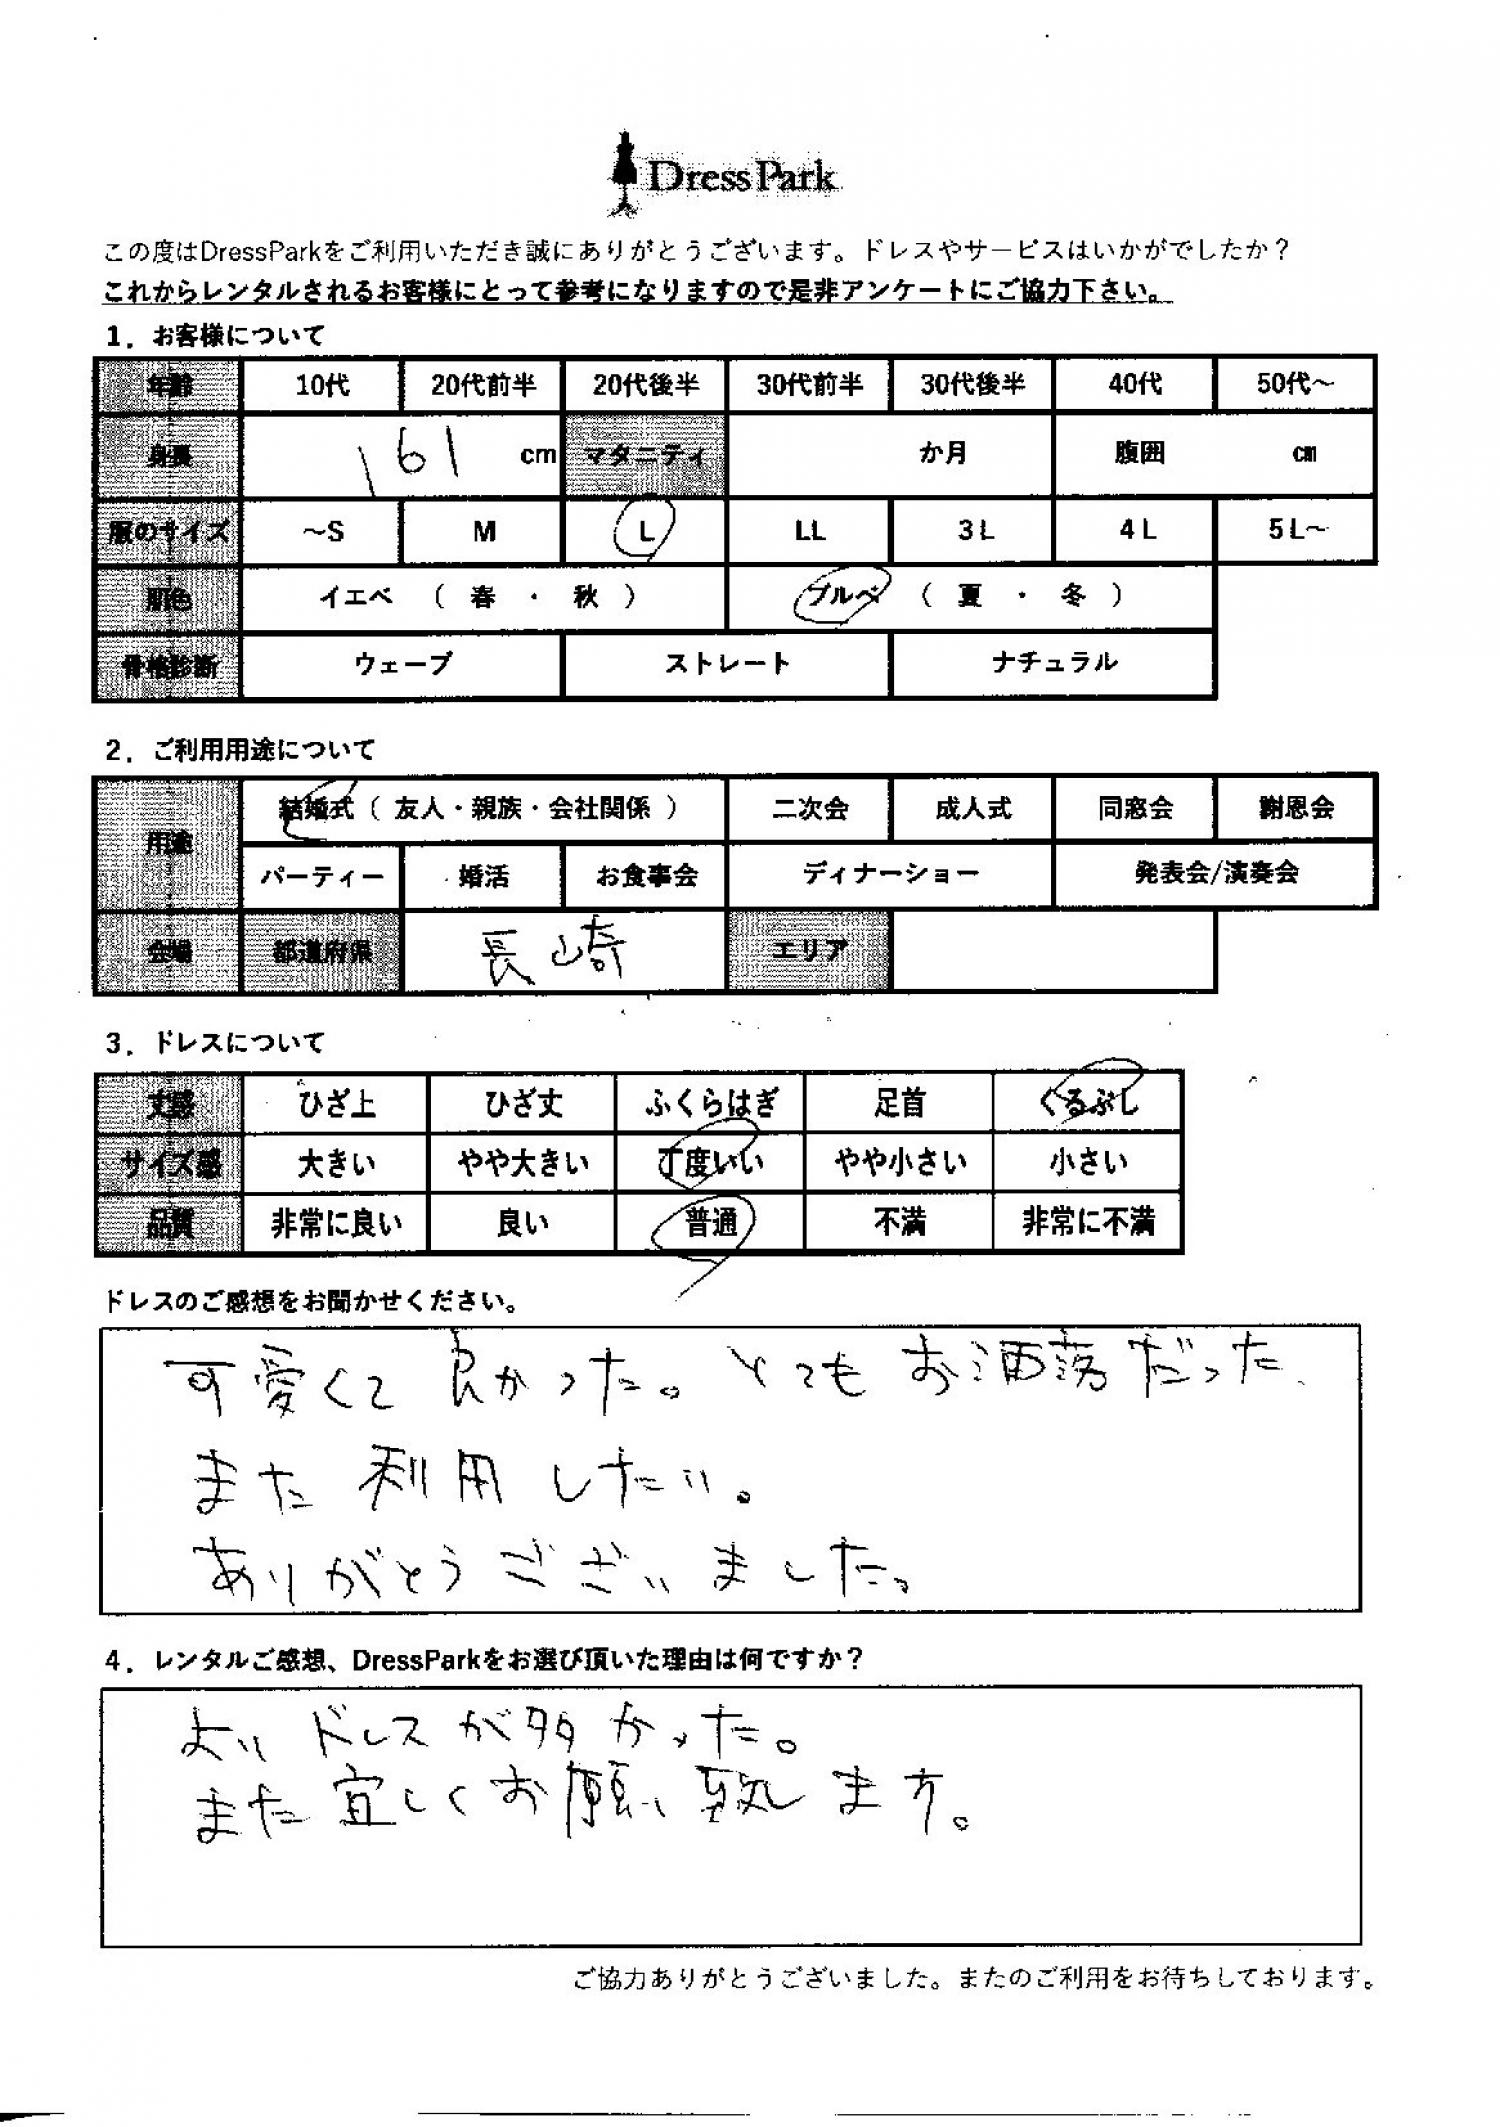 DressPark
この度はDressParkをご利用いただき誠にありがとうございます。ドレスやサービスはいかがでしたか？
これからレンタルされるお客様にとって参考になりますので是非アンケートにご協力下さい。
1．お客様について
年齢 10代 20代前半 20代後半 30代前半 30代後半 40代 50代～
身長 161 cm マタニティ か月 腹囲 cm
服のサイズ ～S M L LL 3L 4L 5L～
肌色 イエベ （ 春 ・ 秋 ） ブルベ （ 夏 ・ 冬 ）
骨格診断 ウェーブ ストレート ナチュラル
2．ご利用用途について
用途 結婚式（ 友人・親族・会社関係 ） 二次会 成人式 同窓会 謝恩会
パーティー 婚活 お食事会 ディナーショー 発表会/演奏会
会場 都道府県 長崎 エリア
3．ドレスについて
丈感 ひざ上 ひざ丈 ふくらはぎ 足首 くるぶし
サイズ感 大きい やや大きい 丁度いい やや小さい 小さい
品質 非常に良い 良い 普通 不満 非常に不満
ドレスのご感想をお聞かせください。
可愛くて 良かった。とてもお洒落だった、
また利用したい。
ありがとうございました。
4．レンタルご感想、DressParkをお選び頂いた理由は何ですか？
よいドレスが多かった。
また宜しくお願い致します。
ご協力ありがとうございました。またのご利用をお待ちしております。